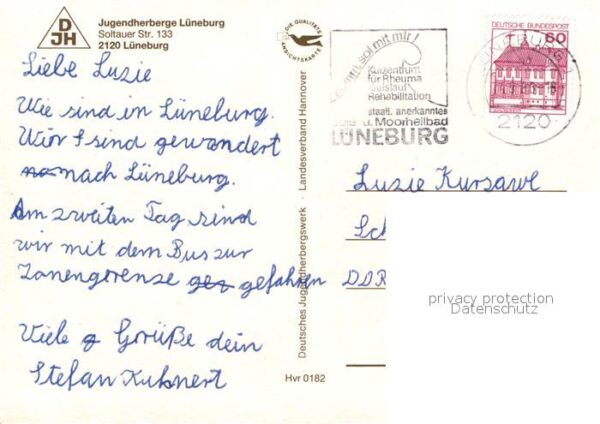 Jugendherberge Lüneburg
Soltauer Str. 133
2120 Lüneburg
DJH
Liebe Luzie
Wie sind in Lüneburg.
Wir sind gewandert
nach Lüneburg.
Am zweiten Tag sind
wir mit dem Bus zur
Zonengrenze gefahren
Viele Grüße dein
Stefan Kuhnert
DIE QUALITÄTS
ANSICHTSKARTE
Deutsches Jugendherbergswerk · Landesverband Hannover
Hvr 0182
sol mit mir!
Kurzentrum
für Rheuma
Rehabilitation
staatl. anerkanntes
u. Moorheilbad
LÜNEBURG
DEUTSCHE BUNDESPOST
60
2120
Luzie Kursawe
DDR
privacy protection
Datenschutz